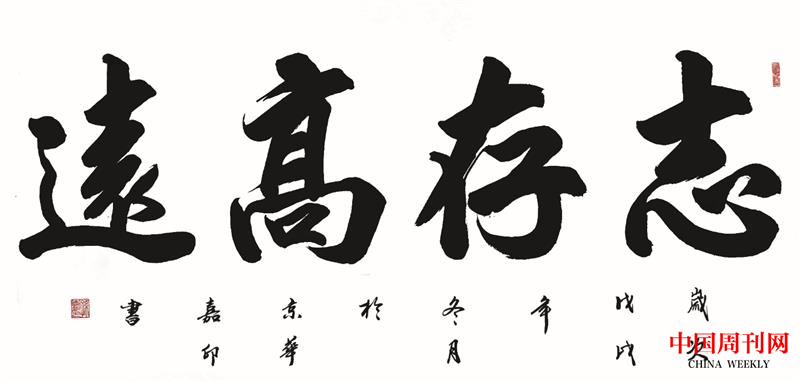 志存高遠
歲次戊戌年冬月於京華嘉卯書
中国周刊网
CHINA WEEKLY